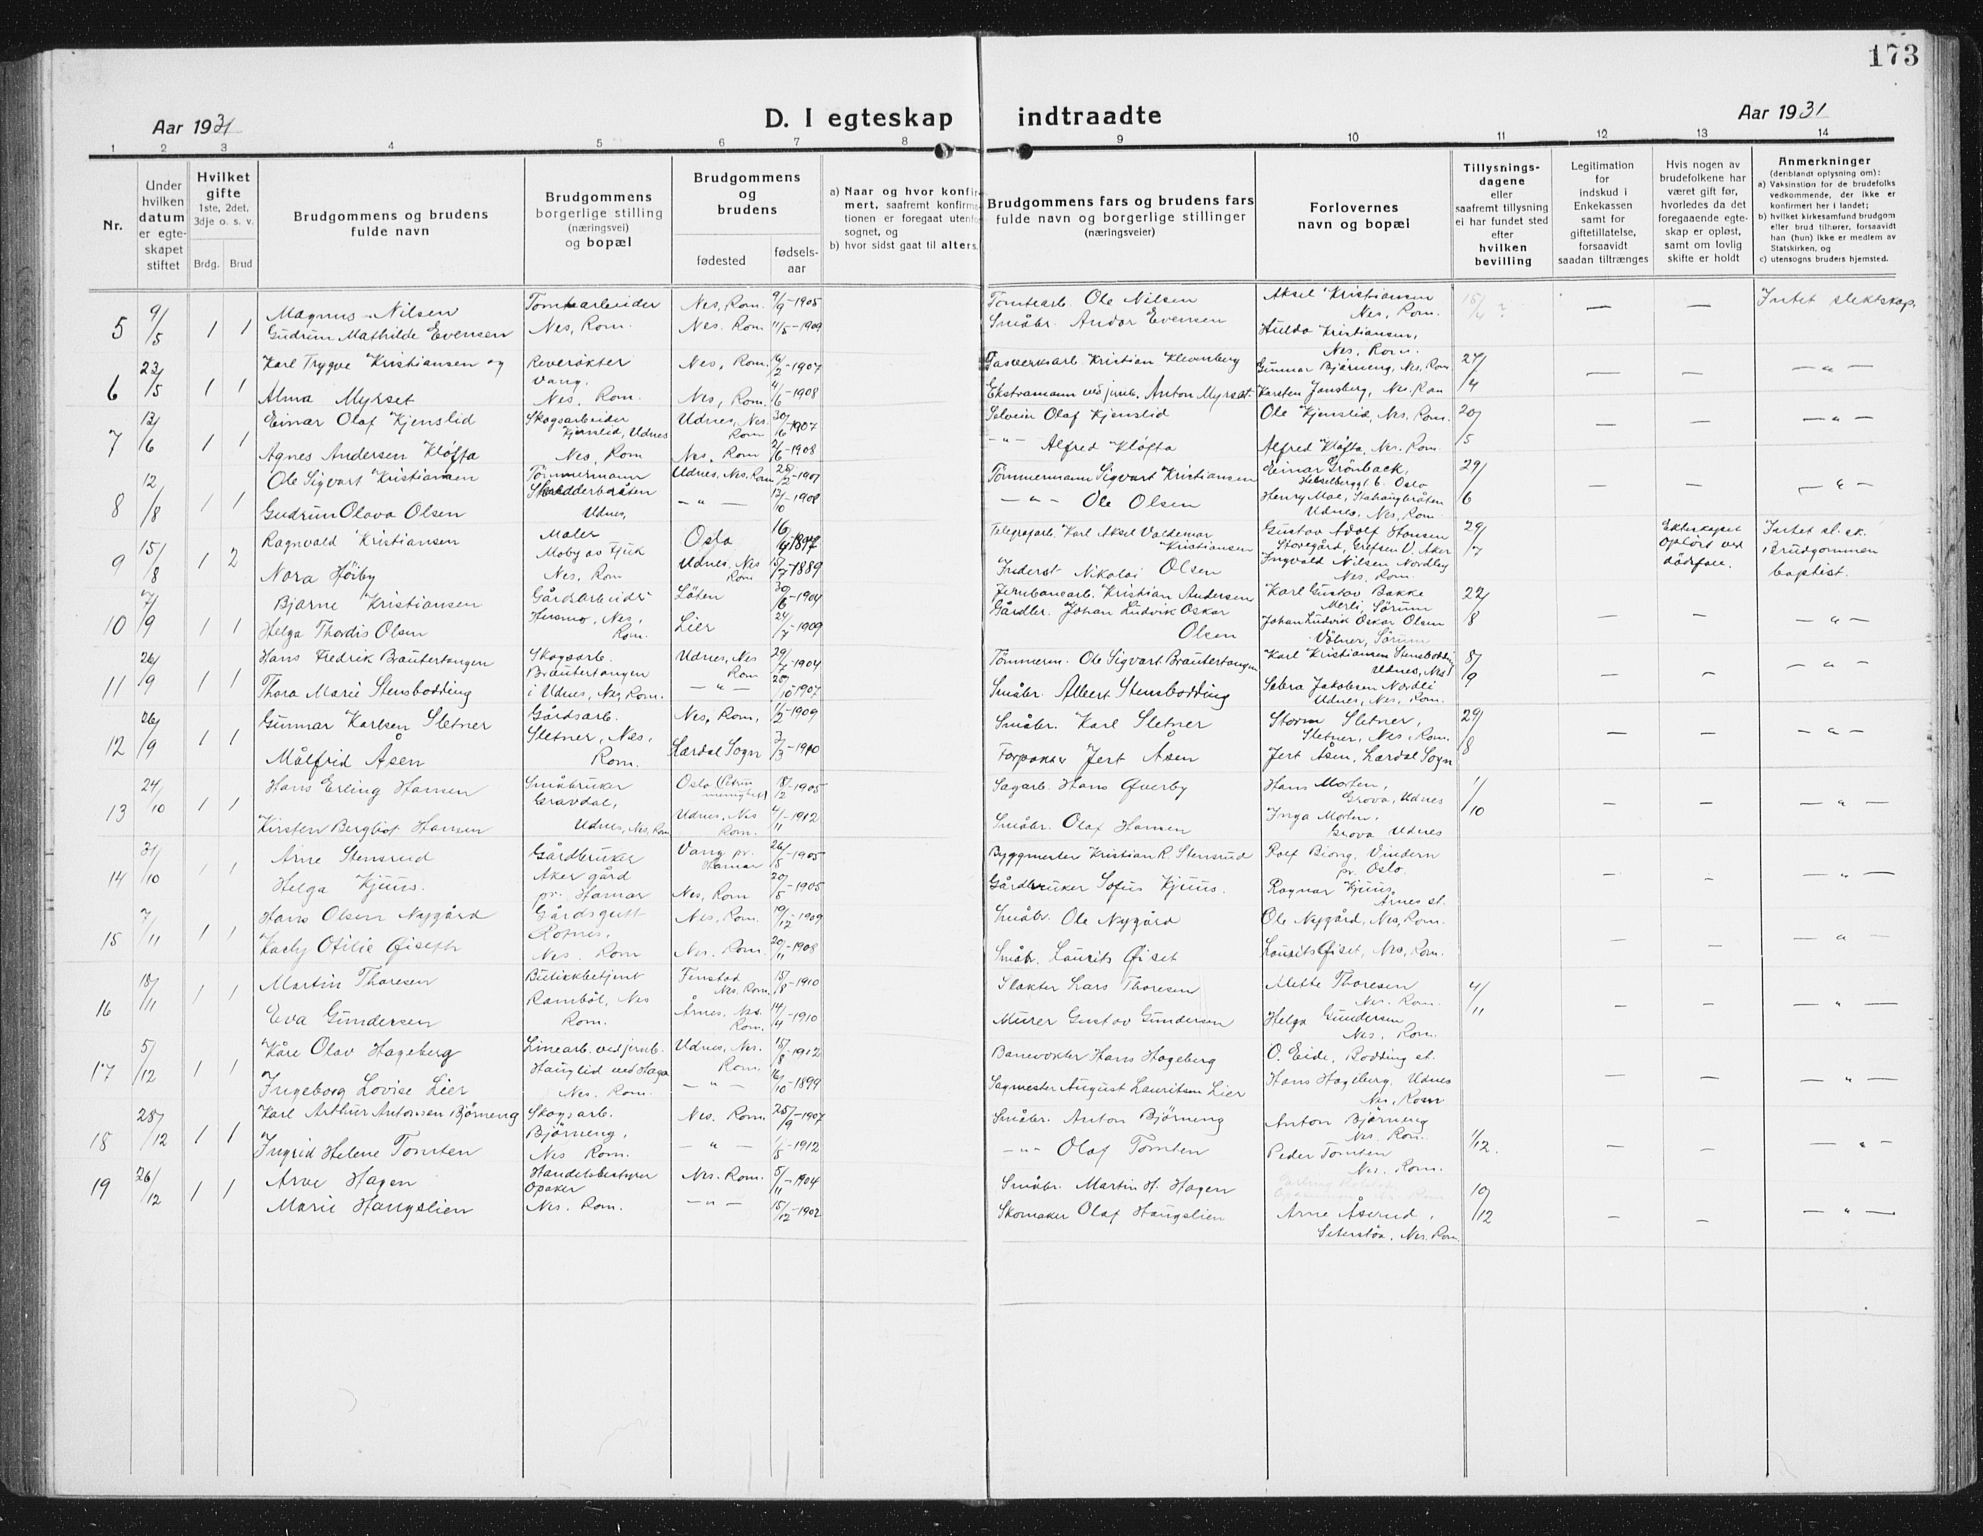 173
Aar 1931
D. I egteskap indtraadte
Aar 1931
1 2 3 4 5 6 7 8 9 10 11 12 13 14
Nr.
Under hvilken datum er egte- skapet stiftet
Hvilket gifte 1ste, 2det, 3dje o. s. v.
Brdg. Brud
Brudgommens og brudens fulde navn
Brudgommens borgerlige stilling (næringsvei) og bopæl
Brudgommens og brudens
fødested
fødsels- aar
a) Naar og hvor konfir- mert, saafremt konfirma- tionen er foregaat utenfor sognet, og
b) hvor sidst gaat til alters.
Brudgommens fars og brudens fars fulde navn og borgerlige stillinger (næringsveier)
Forlovernes navn og bopæl
Tillysnings- dagene eller saafremt tillysning ei har fundet sted efter hvilken bevilling
Legitimation for indskud i Enkekassen samt for giftetillatelse, forsaavidt saadan tiltrænges
Hvis nogen av brudefolkene har været gift før, hvorledes da det foregaaende egte- skap er opløst, samt om lovlig skifte er holdt
Anmerkninger (deriblandt oplysning om):
a) Vaksination for de brudefolks vedkommende, der ikke er konfirmert her i landet;
b) hvilket kirkesamfund brudgom eller brud tilhører, forsaavidt han (hun) ikke er medlem av Statskirken, og
c) utensogns bruders hjemsted.
5 9/5 1 1 Magnus Nilsen Tomtearbeider Nes, Rom. 9/9-1905 Tomtearb. Ole Nilsen Aksel Kristiansen Nes, Rom. — — Intet slektskap.
Gudrun Mathilde Evensen Nes, Rom. Nes. Rom 11/5-1909 Småbr. Andor Evensen Hulda Kristiansen, Nes, Rom.
6 23/5 1 1 Karl Trygve Kristiansen og Reverøkter Vang. Nes, Rom. 16/2-1907 Gasverksarb. Kristian Klevenberg Gunnar Bjørneng, Nes, Rom 27/4 — — — " —
Alma Myrset Nes, Rom. Nes, Rom. 4/6-1908 Ekstramann ved jernb. Anton Myrset. Karsten Jansberg, Nes, Rom
7 13/6 1 1 Einar Olaf Kjenslid Skogsarbeider Kjenslid, Udnes Udnes, Nes. Rom 30/16-1907 Selveier Olaf Kjenslid Ole Kjenslid, Nes, Rom. 20/5 — — — " —
Agnes Andersen Kløfta Nes, Rom Nes, Rom 2/6-1908 — " — Alfred Kløfta Alfred Kløfta, Nes, Rom.
8 12/8 1 1 Ole Sigvart Kristiansen Tømmermann Udnes, Nes, Rom 28/2-1907 Tømmermann Sigvart Kristiansen Einar Grönback, Oslo 29/6 — — — " —
Gudrun Olava Olsen Udnes, — " — 12/10-1908 — " — Ole Olsen Henry Moe, Udnes, Nes, Rom
9 15/8 1 2 Ragnvald Kristiansen Maler Oslo 16/4-1897 Telegrafarb. Karl Aksel Valdemar Kristiansen Gustav Adolf Hansen Storegård, Grefsen V. Aker 29/7 Ekteskapet opløst ved dödsfall. Intet sl.sk. Brudgommen baptist.
Nora Höiby Nes, Rom Udnes, Nes Rom 15/7-1889 Inderst Nikolai Olsen Ingvald Nilsen Nordby Nes, Rom.
10 7/9 1 1 Bjarne Kristiansen Gårdsarbeider Löten 30/6-1904 Jernbanearb. Kristian Andersen Karl Gustav Bakke Merli, Sörum 22/8 — — — " —
Helga Thordis Olsen Hersmo, Nes, Rom. Lier 24/7-1909 Gårdbr. Johan Ludvik Oskar Olsen Johan Ludvik Oskar Olsen Völner, Sörum
11 26/9 1 1 Hans Fredrik Brautertangen Skogsarb. Brautertangen Udnes, Nes Rom 29/-1904 Tömmerm. Ole Sigvart Brautertangen Karl Kristiansen Stensbodding Udnes, Nes 8/9 — — — " —
Thora Marie Stensbodding i Udnes, Nes, Rom. — " — 20/10-1907 Småbr. Albert Stensbodding Jakobsen Nordli Udnes, Nes, Rom.
12 26/9 1 1 Gunnar Karlsen Sletner Gårdsarb. Nes, Rom, 11/2-1909 Småbr. Karl Sletner Storm Sletner, Sletner, Nes, Rom. 29/8 — — — " —
Målfrid Åsen Sletner, Nes, Rom. Lærdal Sogn 3/3-1910 Forpakter Jert Åsen Jert Åsen, Lærdal Sogn
13 24/10 1 1 Hans Erling Hansen Småbruker Gravdal, Oslo (Petrus menighet) 8/12-1905 Sagarb. Hans Qverby Hans Morten, Grova, Udnes 1/10 — — — " —
Kirsten Bergliot Hansen Udnes, Nes, Rom Udnes, Nes Rom. 4/11-1912 Småbr. Olaf Hansen Inga Morten, Grova Udnes
14 31/10 1 1 Arne Stensrud Gårdbruker Vang pr. Hamar 26/8-1905 Byggmester Kristian R. Stensrud Rolf Biong, Vindern pr. Oslo. — — — " —
Helga Kjuus. Aker gård pr. Hamar Nes, Rom 20/5-1905 Gårdbruker Sofus Kjuus. Ragnar Kjuus, Arnes st.
15 7/11 1 1 Hans Olsen Nygård Gårdsgutt Nes, Rom. 19/12-1909 Småbr. Ole Nygård Ole Nygård, Nes, Rom. — — — " —
Otilie Øiseth Nes. Rom Nes. Rom. 20/11-1908 Småb. Laurits Øiset Laurits Øiset, Nes, Rom.
16 18/11 1 1 Martin Thoresen Butikkbetjent Fenstad Nes. Rom. 15/8-1910 Slakter Lars Thoresen Mette Thoresen Nes. Rom. 4/11 — — — " —
Eva Gundersen Rambøl, Nes Rom. Årnes, Nes. Rom. 14/4-1910 Murer Gustav Gundersen Helga Gundersen Nes, Rom.
17 5/12 1 1 Kåre Olav Hageberg Linearb. ved jernb. Udnes, Nes. Rom. 15/8-1912 Banevokter Hans Hageberg O. Eide, Bodding st. — — — " —
Ingeborg Lovise Lier Hauglid ved Haga Nes. Rom. — " — 16/10-1899 Sagmester August Lauritsen Lier Hans Hageberg Udnes Nes, Rom
18 25/12 1 1 Karl Arthur Antonsen Bjørneng Skogsarb. Nes. Rom 25/9-1907 Småbr. Anton Bjørneng Anton Bjørneng Nes. Rom. 1/12. — — — " —
Ingrid Helene Tomten Bjørneng, Nes Rom. — " — 1/5-1912 — " — Olaf Tomten Peder Tomten Nes. Rom.
19 26/12 1 1 Arne Hagen Handelsbestyrer Opaker Nes. Rom. 5/11-1904 Småbr. Martin H. Hagen 10/12 — — — " —
Marie Haugslien Nes. Rom. — " — 15/12-1902 Skomaker Olaf Haugslien Arne Åserud, Seterstøa, Nes, Rom.